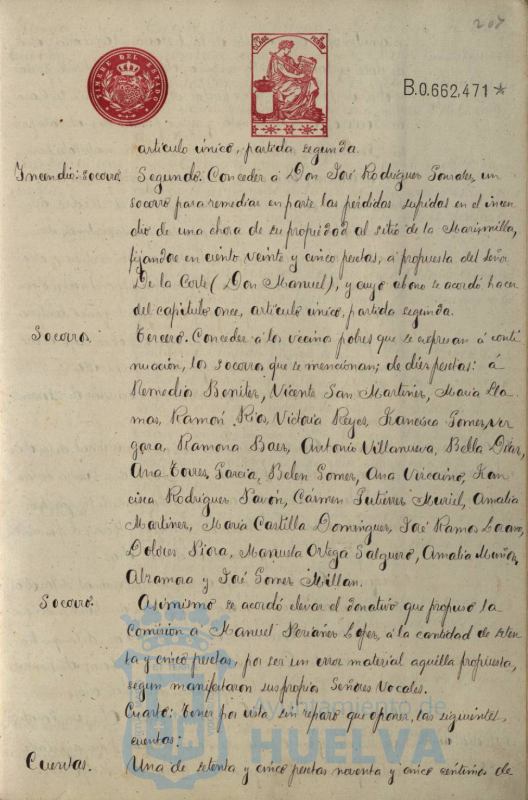 207
TIMBRE DEL ESTADO
B.0.662,471*
artículo único, partida segunda.
Incendio: socorro. Segundo: Conceder á Don José Rodriguez Gonzalez, un
socorro para remediar en parte las pérdidas sufridas en el incen
dio de una choza de su propiedad al sitio de la Marismilla,
fijandose en ciento veinte y cinco pesetas, á propuesta del señor
De la Corte (Don Manuel), y cuyo abono se acordó hacer
del capitulo once, artículo único, partida segunda.
Socorros. Tercero. Conceder á los vecinos pobres que se expresan á conti
nuación, los socorros que se mencionan; de diez pesetas: á
Remedio Benitez, Vicente San Martinez, Maria Lla-
mas, Ramón Rios, Victoria Reyes, Francisca Gomez, Ver
gara, Ramona Baez, Antonio Villanueva, Bella
Ana Torres, Garcia, Belen Gomez, Ana Vizcaino, Fran
cisca Rodriguez Pavón, Cármen Gutiérrez Muriel, Amalia
Martinez, María Castilla Dominguez, José Ramos
Dolores Piosa, Manuela Ortega Salguero, Amalia Muñoz,
y José Gomez Millan.
Socorro. Asimismo se acordó elevar el donativo que propuso la
Comisión á Manuel Periañez Lopez, á la cantidad de seten
ta y cinco pesetas, por ser un error material aquella propuesta,
segun manifestaron sus propios Señores Vocales.
Cuarto: Tener por vista sin reparo que oponer, las siguientes
cuentas:
Cuentas. Una de setenta y cinco pesetas noventa y cinco centimos de
Ayuntamiento de
HUELVA